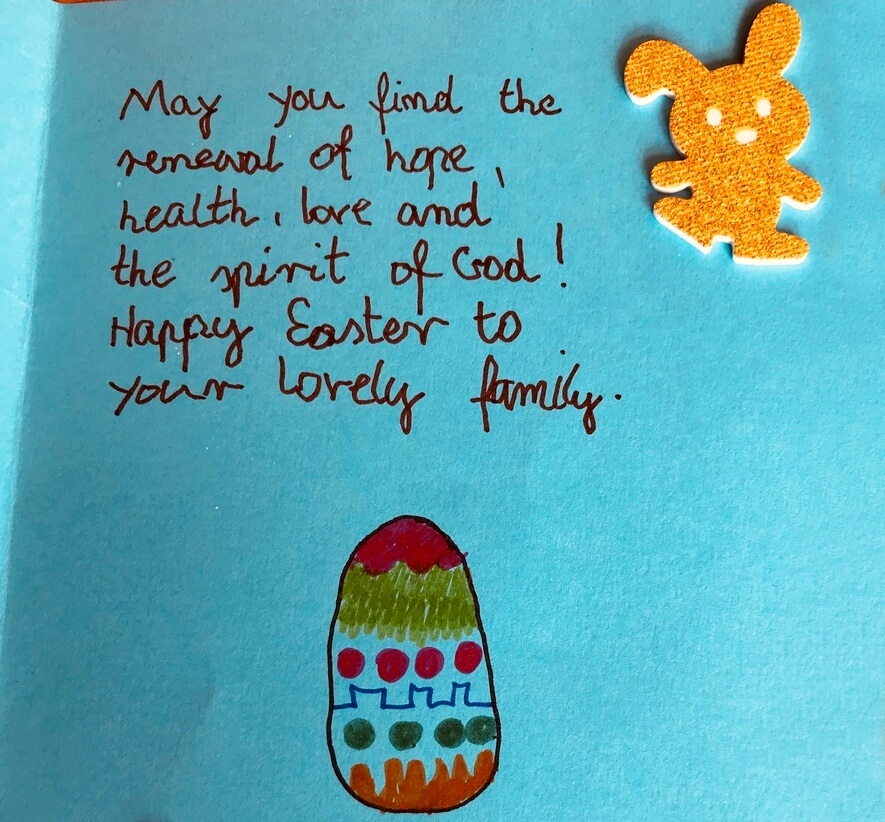 May you find the
renewal of hope,
health, love and
the spirit of God!
Happy Easter to
your lovely family.